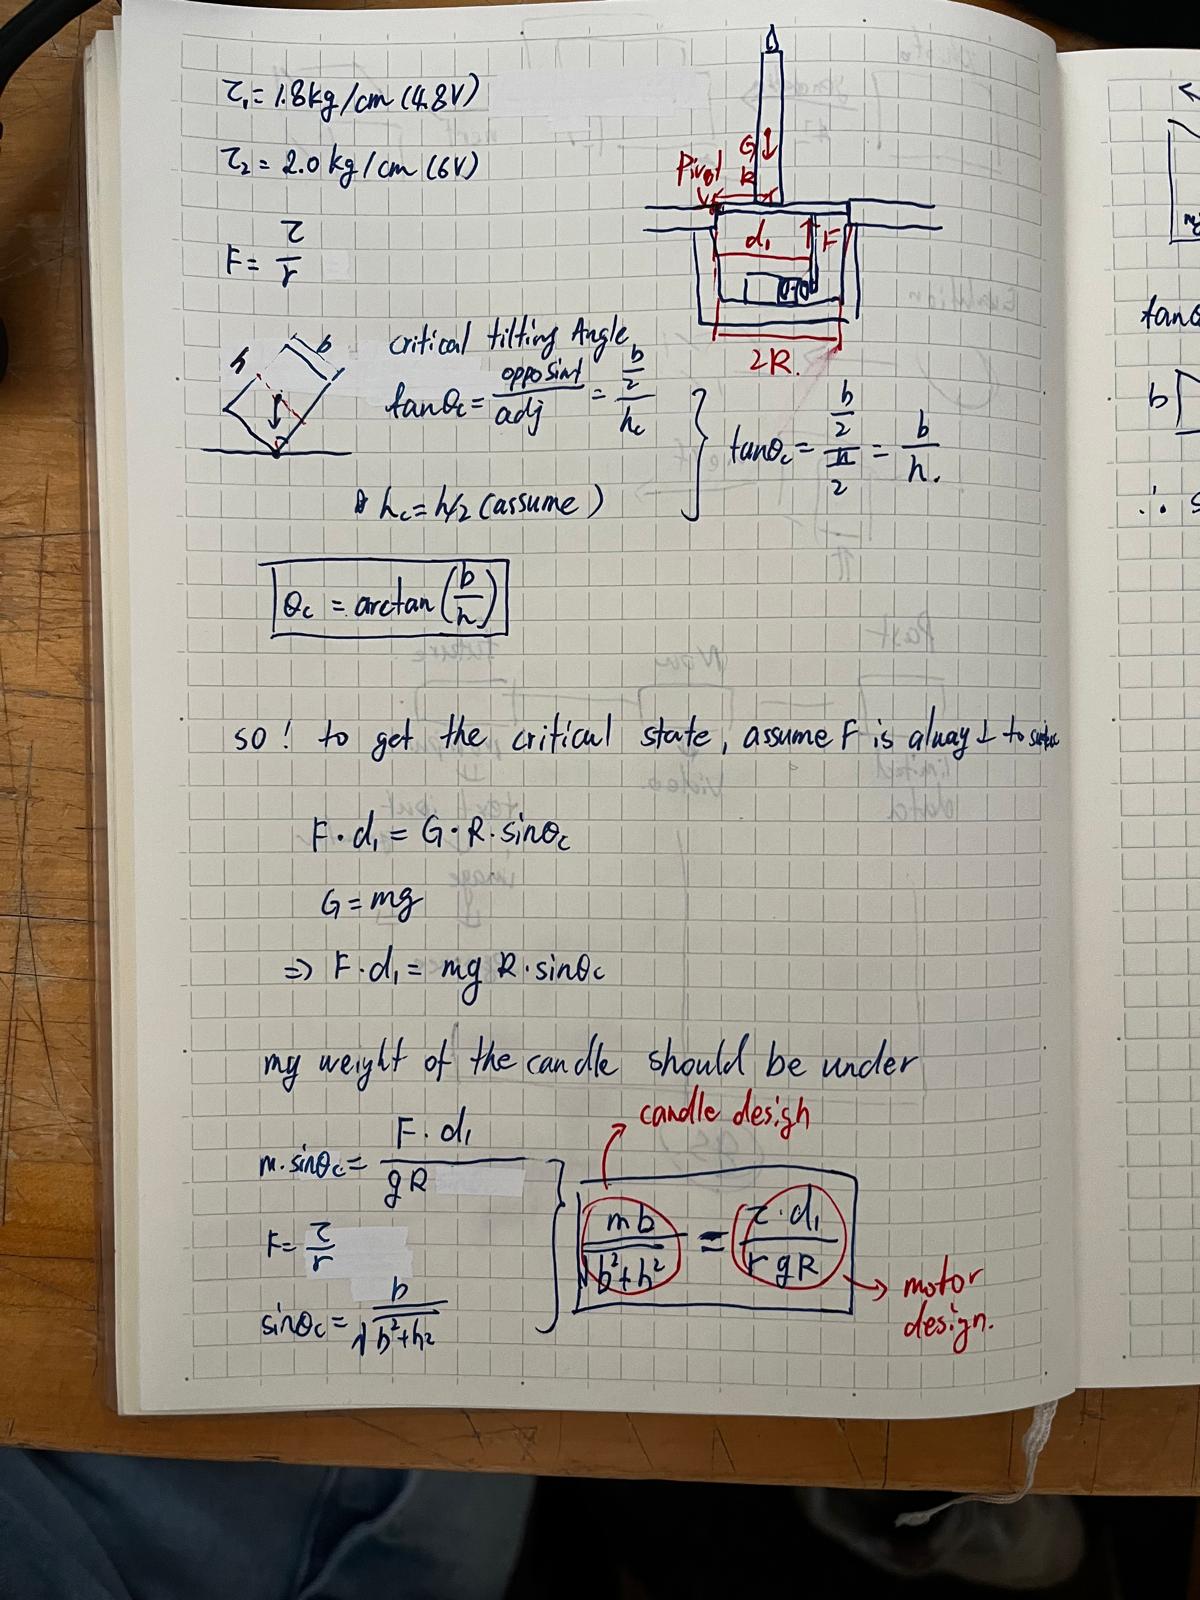 τ₁ = 1.8kg/cm (4.8V)
τ₂ = 2.0 kg/cm (6V)
F = τ/r
G
R
Pivot
d₁
F
2R.
h
b
critical tilting Angle
tanθc = opposint/adj = (b/2)/hc
hc = h/2 (assume)
tanθc = (b/2)/(h/2) = b/h.
θc = arctan(b/h)
so! to get the critical state, assume F is alway ⊥ to surface
F·d₁ = G·R·sinθc
G = mg
=> F·d₁ = mg R·sinθc
my weight of the candle should be under
candle desigh
m·sinθc = F·d₁/gR
F = τ/r
sinθc = b/√(b²+h²)
mb/√(b²+h²) = τ·d₁/rgR
motor
design.
tanθ
b
∴ s